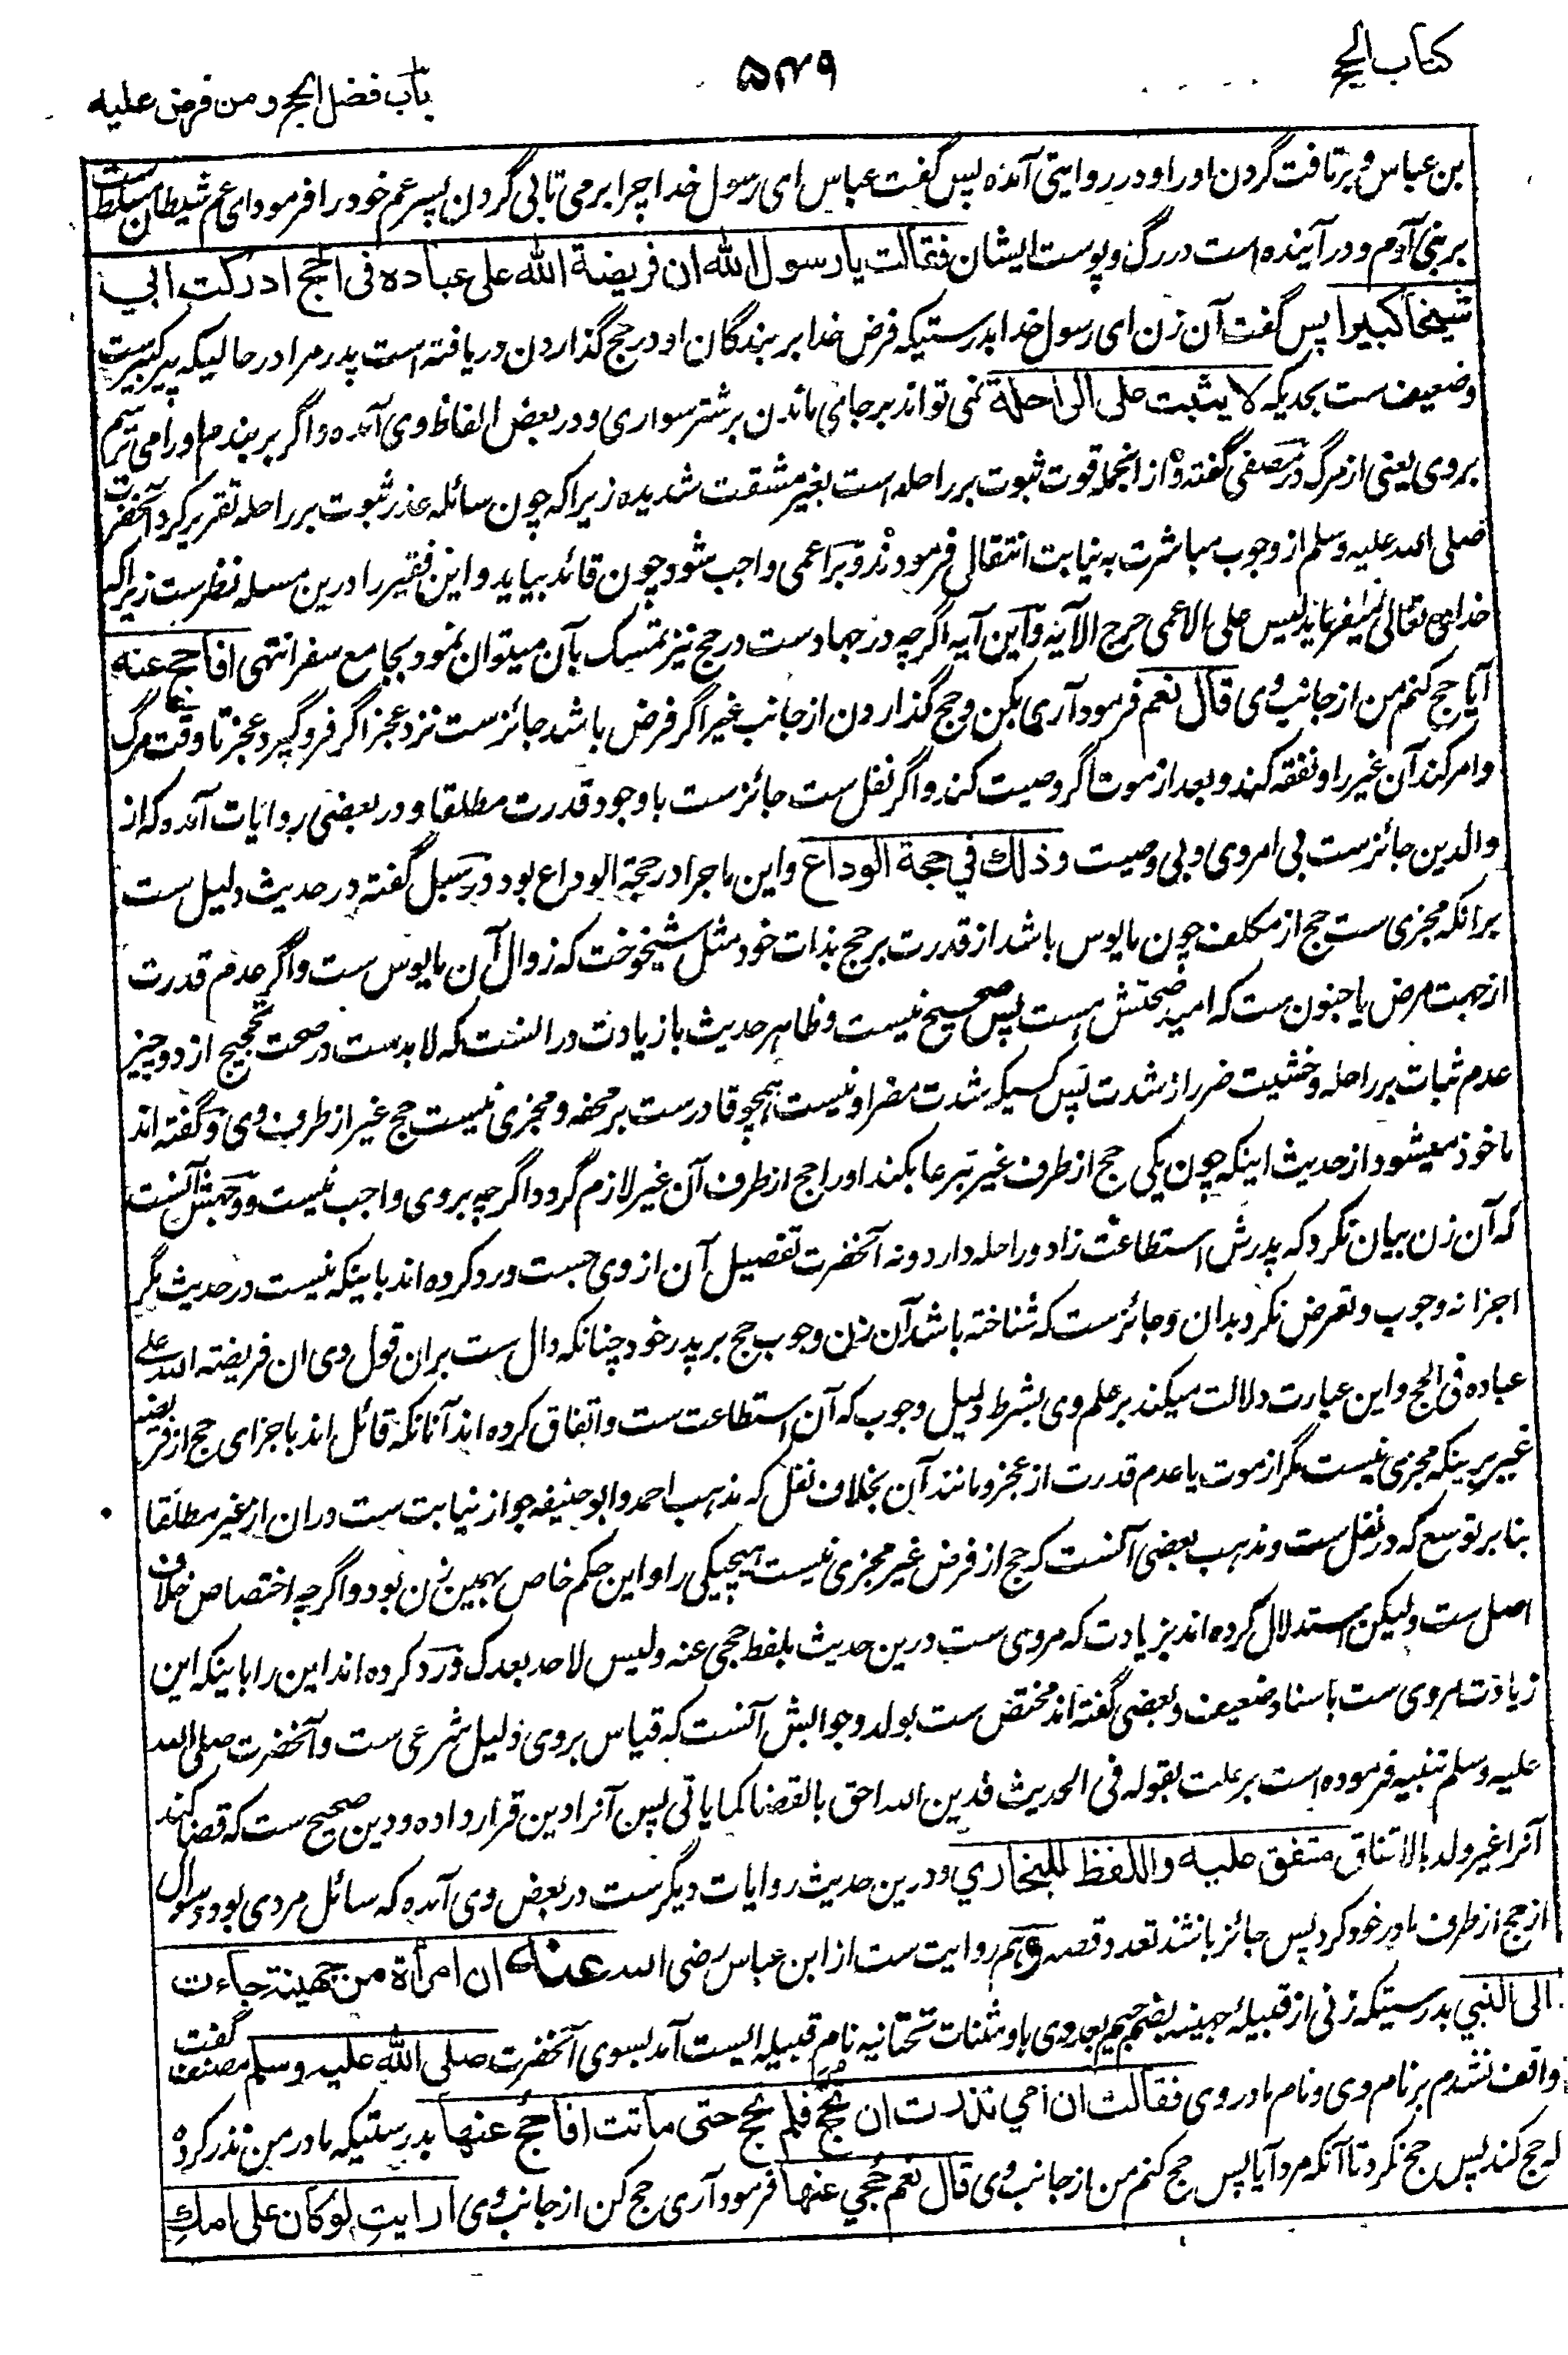 کتاب الحج
۵۴۹
باب فضل الحج و من فرض علیه
بن عباس و برتافت گردن او را و در روایتی آمده پس گفت عباس ای رسول خدا چرا برمی تابی گردن پسر عم خود را فرمود ای عم شیطان مسلط ست
بر بنی آدم و در آینده است در رگ و پوست ایشان فقالت یا رسول الله ان فریضة الله علی عباده فی الحج ادرکت ابی
شیخا کبیرا پس گفت آن زن ای رسول خدا بدرستیکه فرض خدا بر بندگان او در حج گذاردن دریافته است پدر مرا در حالیکه پیر کبیر ست
و ضعیف ست بحدیکه لا یثبت علی الراحلة نمی تواند بر جای ماندن بر شتر سواری و در بعض الفاظ وی آمده و اگر بر بندم او را می ترسم
بر وی یعنی از مرگ در مصفی گفته و از انجمله قوت ثبوت بر راحله است بغیر مشقت شدیده زیرا که چون سائله عذر ثبوت بر راحله تقریر کرد آنحضرت
صلی الله علیه وسلم از وجوب مباشرت به نیابت انتقالی فرمودند و بر اعمی واجب شود چون قائد بیاید و این فقیر را درین مسله نظرست زیرا که
خدای تعالی میفرماید لیس علی الاعمی حرج الآیه و این آیه اگرچه در جهادست در حج نیز تمسک بآن میتوان نمود بجامع سفر انتهی افاحج عنه
آیا حج کنم من از جانب وی قال نعم فرمود آری بکن و حج گذاردن از جانب غیر اگر فرض باشد جائزست نزد عجز اگر فرو گیرد عجز تا وقت مرگ
و امر کند آن غیر را و نفقه کند و بعد از موت اگر وصیت کند و اگر نفل ست جائزست با وجود قدرت مطلقا و در بعضی روایات آمده که از
والدین جائزست بی امر وی و بی وصیت و ذلك في حجة الوداع و این ماجرا در حجة الوداع بود و در سبل گفته در حدیث دلیل ست
برانکه مجزی ست حج از مکلف چون مایوس باشد از قدرت بر حج بذات خود مثل شیخوخت که زوال آن مایوس ست و اگر عدم قدرت
از جهت مرض یا جنون ست که امید صحتش هست پس صحیح نیست و ظاهر حدیث با زیادت در آنست که لابدست در صحت تحجیج از دو چیز
عدم ثبات بر راحله و خشیت ضرر از شدت پس کسیکه شدت مضر او نیست همچو قادرست بر محفه و مجزی نیست حج غیر از طرف وی و گفته اند
ماخوذ میشود از حدیث اینکه چون یکی حج از طرف غیر تبرعا بکند او را حج از طرف آن غیر لازم گردد اگرچه بر وی واجب نیست و وجهش آنست
که آن زن بیان نکرد که پدرش استطاعت زاد و راحله دارد و نه آنحضرت تفصیل آن از وی جست و رد کرده اند باینکه نیست در حدیث مگر
اجزا نه وجوب و تعرض نکرد بدان و جائزست که شناخته باشد آن زن وجوب حج بر پدر خود چنانکه دال ست بران قول وی ان فریضته الله علی
عباده فی الحج و این عبارت دلالت میکند بر علم وی بشرط دلیل وجوب که آن استطاعت ست و اتفاق کرده اند آنانکه قائل اند باجزای حج از فریضه
غیر برینکه مجزی نیست مگر از موت یا عدم قدرت از عجز و مانند آن بخلاف نفل که مذهب احمد و ابو حنیفه جواز نیابت ست دران از غیر مطلقا
بنابر توسع که در نفل ست و مذهب بعضی آنست که حج از فرض غیر مجزی نیست هیچیکی را و این حکم خاص بهمین زن بود و اگرچه اختصاص خلاف
اصل ست ولیکن استدلال کرده اند بزیادت که مروی ست درین حدیث بلفظ حجی عنه و لیس لاحد بعدک و رد کرده اند این را باینکه این
زیادت مروی ست باسناد ضعیف و بعضی گفته اند مختص ست بولد و جوابش آنست که قیاس بر وی دلیل شرعی ست و آنحضرت صلی الله
علیه وسلم تنبیه فرموده است بر علت بقوله فی الحدیث فدین الله احق بالقضا کما یاتی پس آنرا دین قرار داده و دین صحیح ست که قضا کند
آنرا غیر ولد بالاتفاق متفق علیه واللفظ للبخاري و درین حدیث روایات دیگرست در بعض وی آمده که سائل مردی بود و سوال
از حج از طرف مادر خود کرد پس جائز باشد تعدد قصه و هم روایت ست از ابن عباس رضی الله عنه ان امرأة من جهینة جاءت
الی النبي بدرستیکه زنی از قبیلهٔ جهینه بضم جیم بعد وی ها و مثنات تحتانیه نام قبیله ایست آمد بسوی آنحضرت صلی الله علیه وسلم مصنف گفت
واقف نشدم بر نام وی و نام مادر وی فقالت ان امي نذرت ان تحج فلم تحج حتی ماتت افاحج عنها بدرستیکه مادر من نذر کرده
که حج کند پس حج نکرد تا آنکه مرد آیا پس حج کنم من از جانب وی قال نعم حجي عنها فرمود آری حج کن از جانب وی ارایت لو کان علی امك